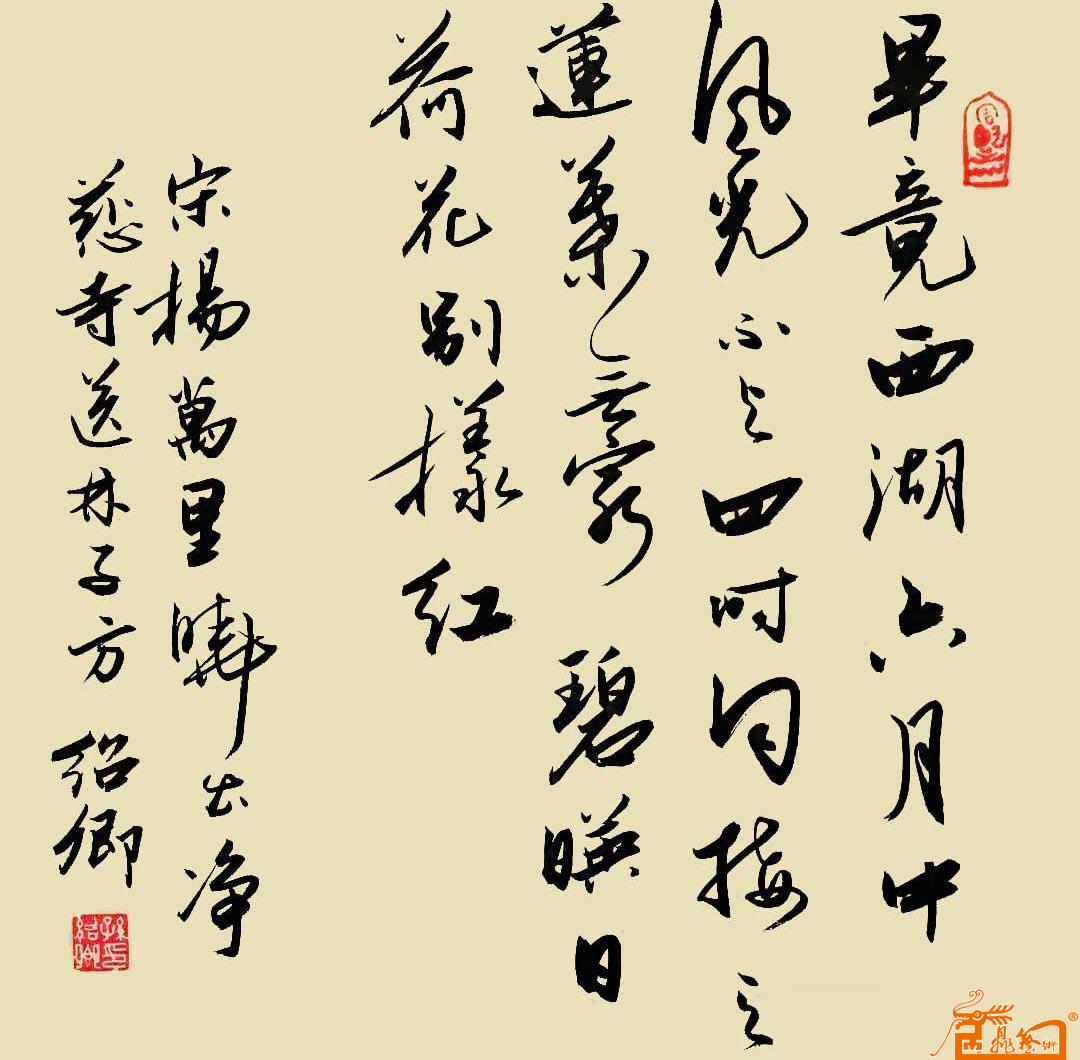 畢竟西湖六月中
風光不与四時同接天
蓮葉無窮碧暎日
荷花別樣紅
宋楊萬里曉出净
慈寺送林子方 紹卿